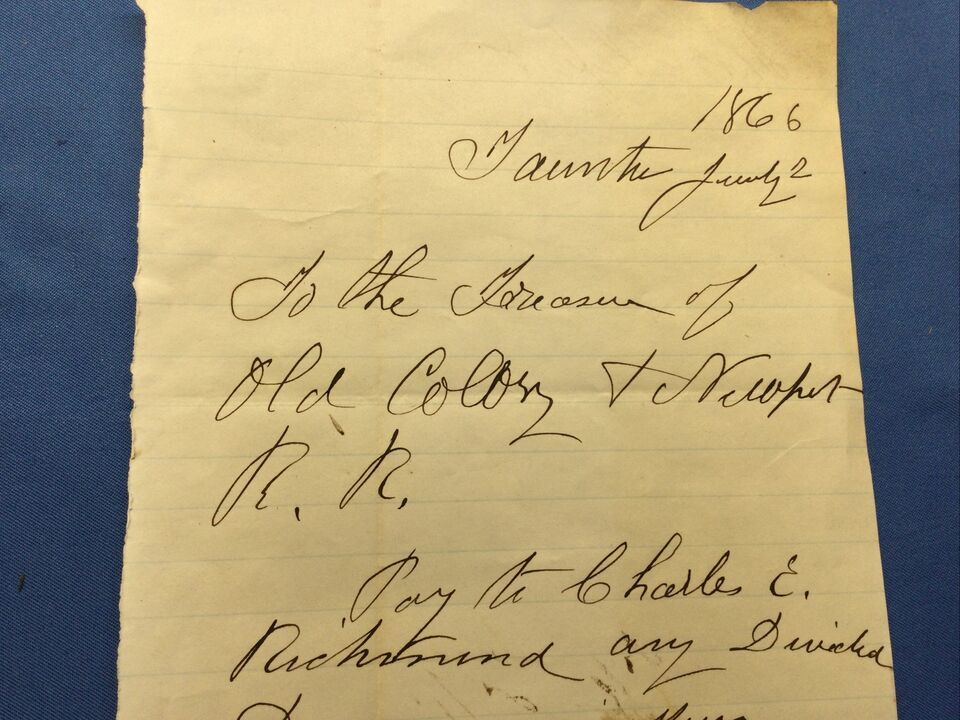 1866
Taunton July 2
To the Treasurer of
Old Colony & Newport
R. R.
Pay to Charles E.
Richmond any Divided